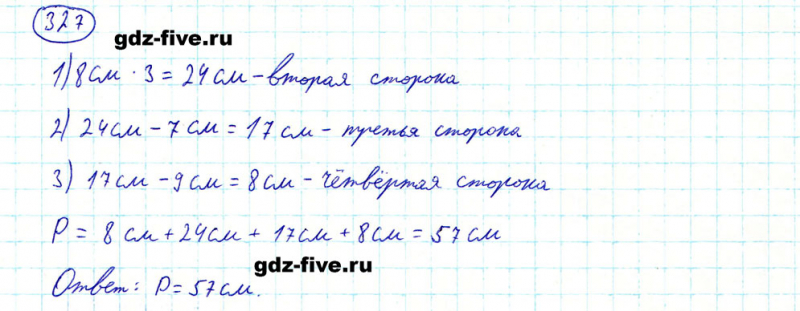 327
gdz-five.ru
1) 8 см · 3 = 24 см - вторая сторона
2) 24 см - 7 см = 17 см - третья сторона
3) 17 см - 9 см = 8 см - чётвёртая сторона
P = 8 см + 24 см + 17 см + 8 см = 57 см
gdz-five.ru
Ответ: P = 57 см.